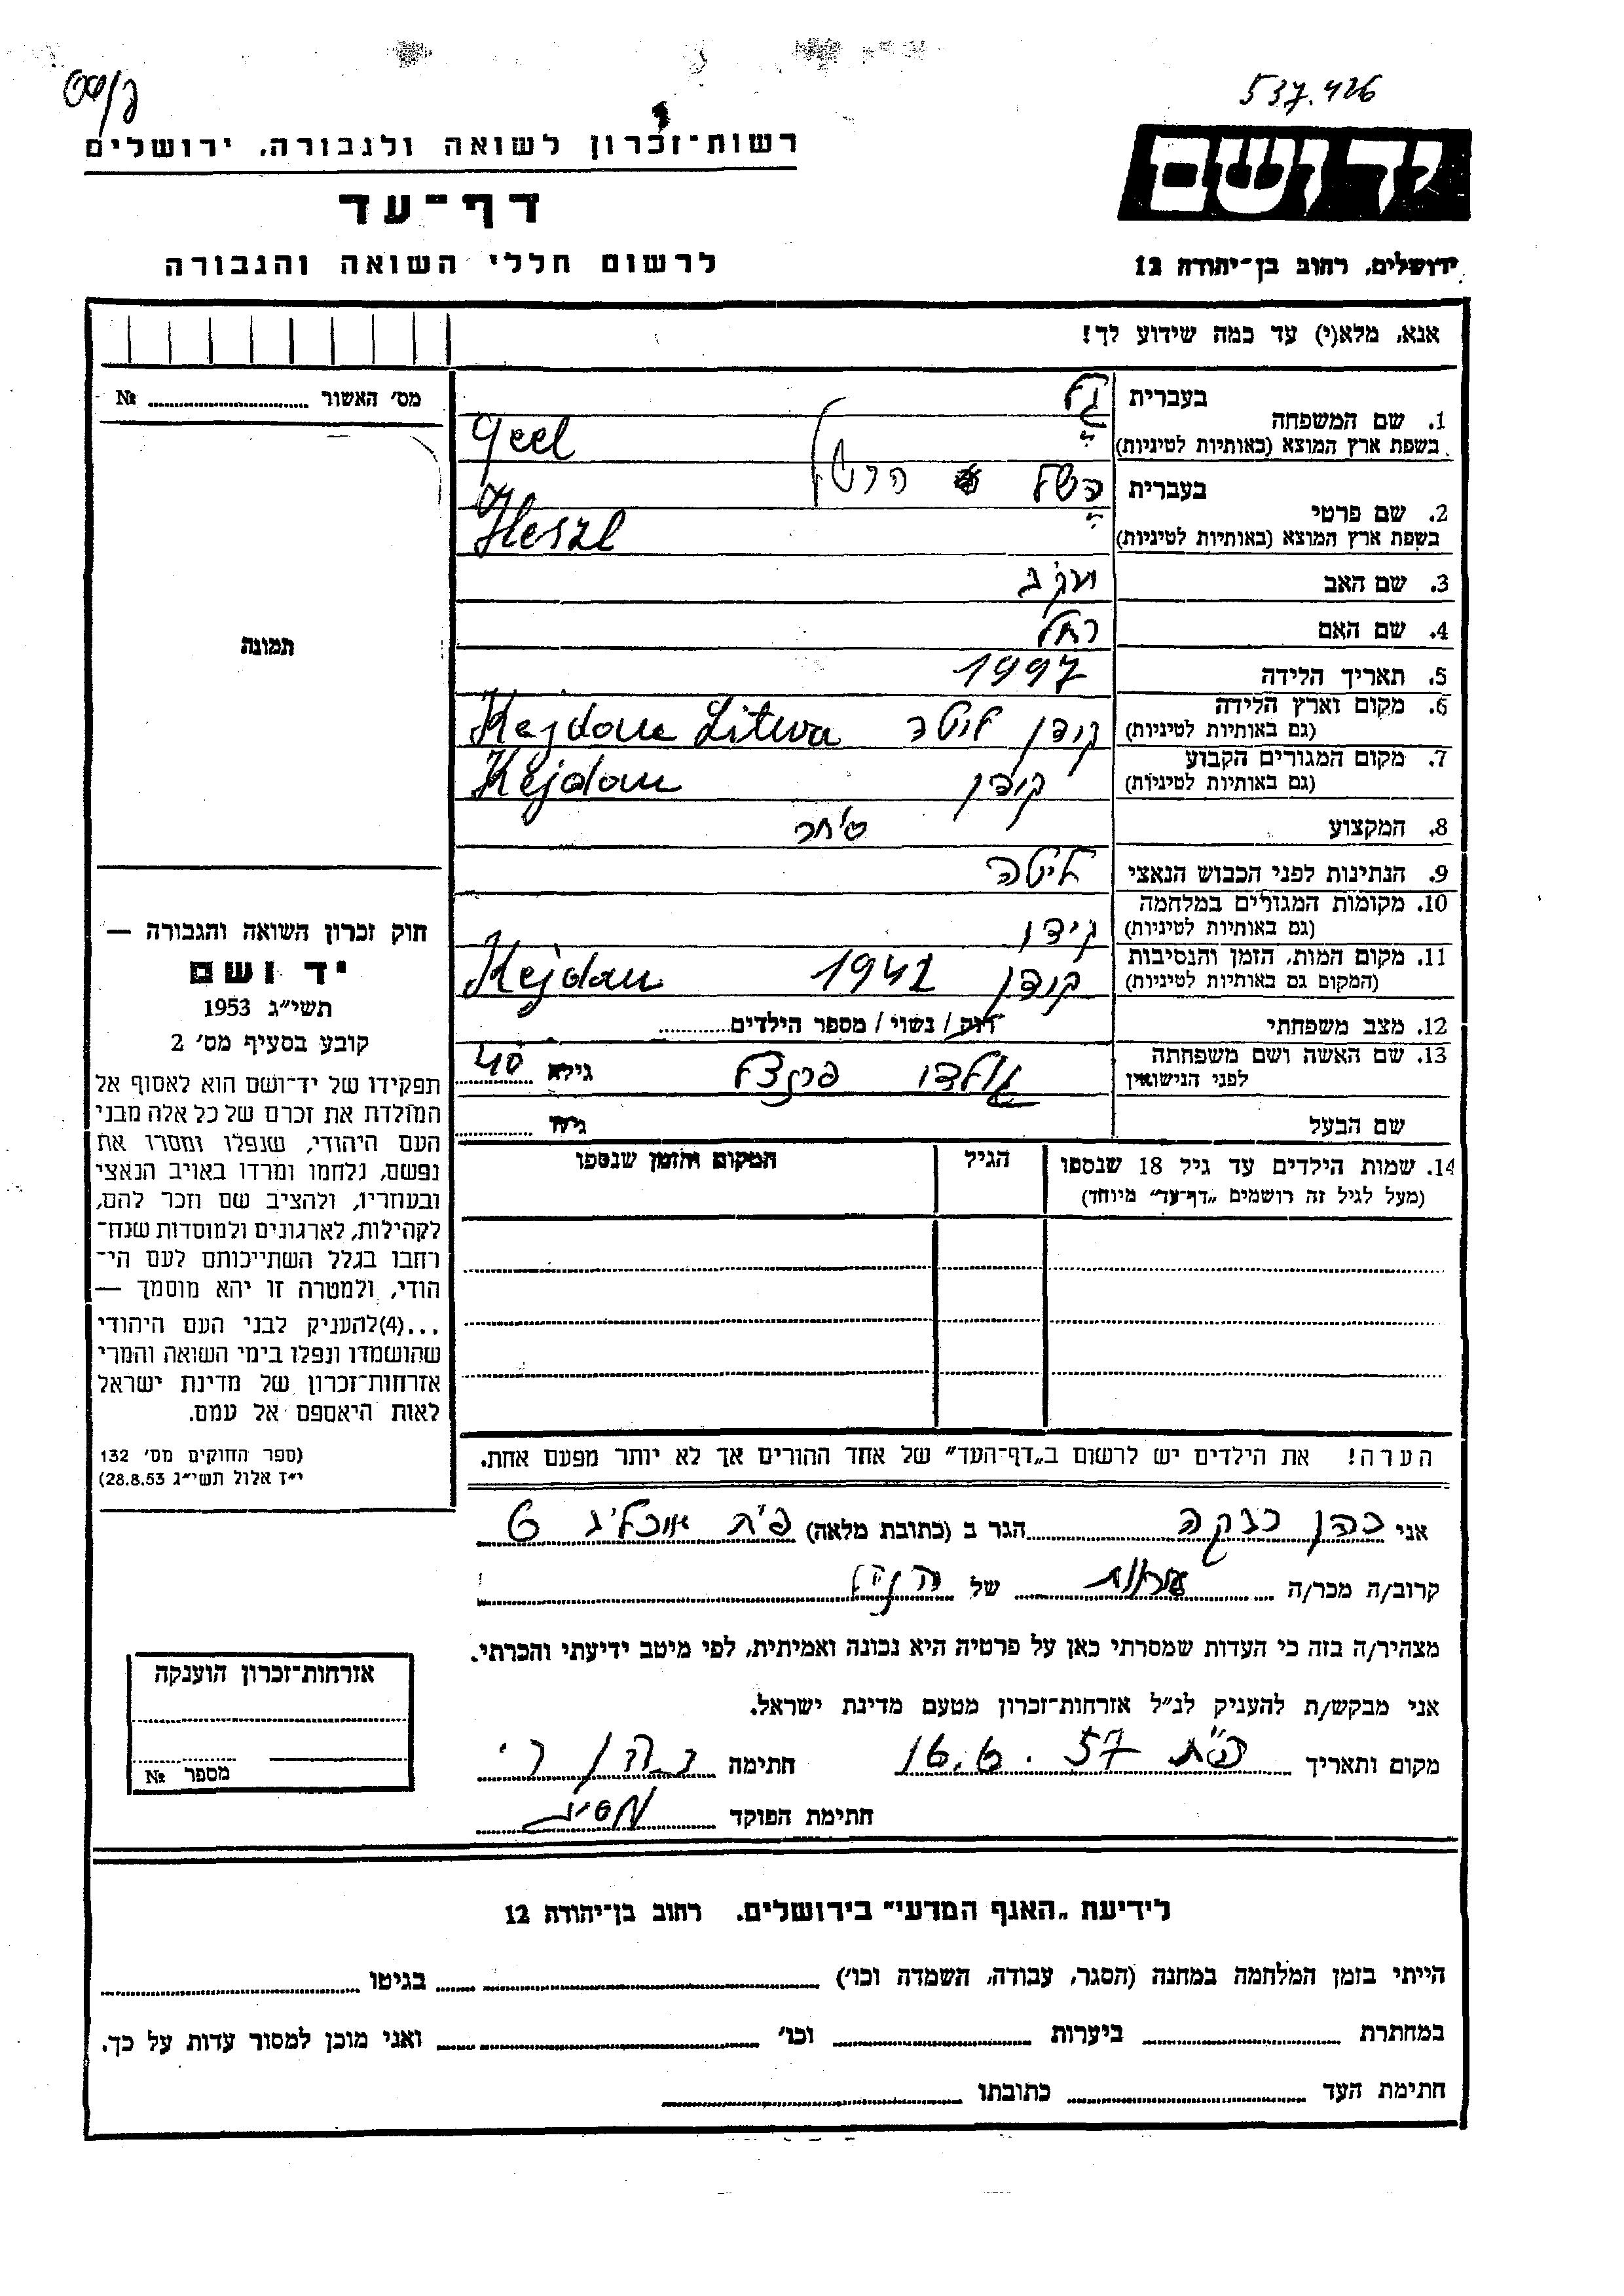 537.426
רשות־זכרון לשואה ולגבורה, ירושלים
יד ושם
דף־עד
לרשום חללי השואה והגבורה
ירושלים, רחוב בן־יהודה 12
אנא, מלא(י) עד כמה שידוע לך!
מס׳ האשור № 
1. שם המשפחה
בעברית
בשפת ארץ המוצא (באותיות לטיניות) Geel
2. שם פרטי
בעברית השל הרשל
בשפת ארץ המוצא (באותיות לטיניות) Heszl
3. שם האב
4. שם האם רחל
5. תאריך הלידה 1997
6. מקום וארץ הלידה
(גם באותיות לטיניות) קידן ליטה Kejdan Litwa
7. מקום המגורים הקבוע
(גם באותיות לטיניות) קידן Kejdan
8. המקצוע סוחר
9. הנתינות לפני הכבוש הנאצי ליטה
10. מקומות המגורים במלחמה
(גם באותיות לטיניות) קידן
11. מקום המות, הזמן והנסיבות
(המקום גם באותיות לטיניות) קידן 1941 Kejdan
12. מצב משפחתי רווק / נשוי / מספר הילדים
13. שם האשה ושם משפחתה
לפני הנישואין גולדה גילה 40
שם הבעל גילו
14. שמות הילדים עד גיל 18 שנספו
(מעל לגיל זה רושמים „דף־עד” מיוחד)
הגיל
המקום והזמן שנספו
תמונה
חוק זכרון השואה והגבורה —
יד ושם
תשי״ג 1953
קובע בסעיף מס׳ 2
תפקידו של יד־ושם הוא לאסוף אל
המולדת את זכרם של כל אלה מבני
העם היהודי, שנפלו ומסרו את
נפשם, נלחמו ומרדו באויב הנאצי
ובעוזריו, ולהציב שם וזכר להם,
לקהילות, לארגונים ולמוסדות שנח־
רחבו בגלל השתייכותם לעם הי־
הודי, ולמטרה זו יהא מוסמך —
...(4)להעניק לבני העם היהודי
שהושמדו ונפלו בימי השואה והמרי
אזרחות־זכרון של מדינת ישראל
לאות היאספם אל עמם.
(ספר החוקים מס׳ 132
י״ז אלול תשי״ג 28.8.53)
הערה! את הילדים יש לרשום ב„דף־העד” של אחד ההורים אך לא יותר מפעם אחת.
אני כהן רבקה הגר ב (כתובת מלאה) פ״ת
קרוב/ה מכר/ה של
מצהיר/ה בזה כי העדות שמסרתי כאן על פרטיה היא נכונה ואמיתית, לפי מיטב ידיעתי והכרתי.
אני מבקש/ת להעניק לנ״ל אזרחות־זכרון מטעם מדינת ישראל.
מקום ותאריך פ״ת 16.6.57 חתימה כהן ר׳
חתימת הפוקד
אזרחות־זכרון הוענקה
מספר №
לידיעת „האגף המדעי” בירושלים. רחוב בן־יהודה 12
הייתי בזמן המלחמה במחנה (הסגר, עבודה, השמדה וכו׳) בגיטו
במחתרת ביערות וכו׳ ואני מוכן למסור עדות על כך.
חתימת העד כתובתו